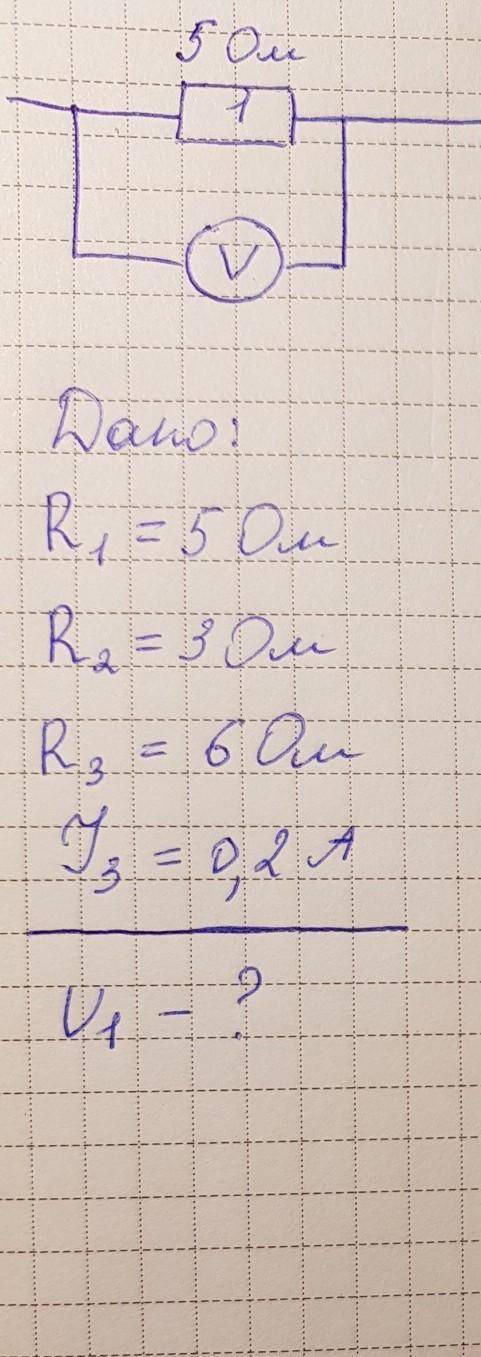 5 Ом
1
V
Дано:
R₁ = 5 Ом
R₂ = 3 Ом
R₃ = 6 Ом
I₃ = 0,2 А
U₁ – ?